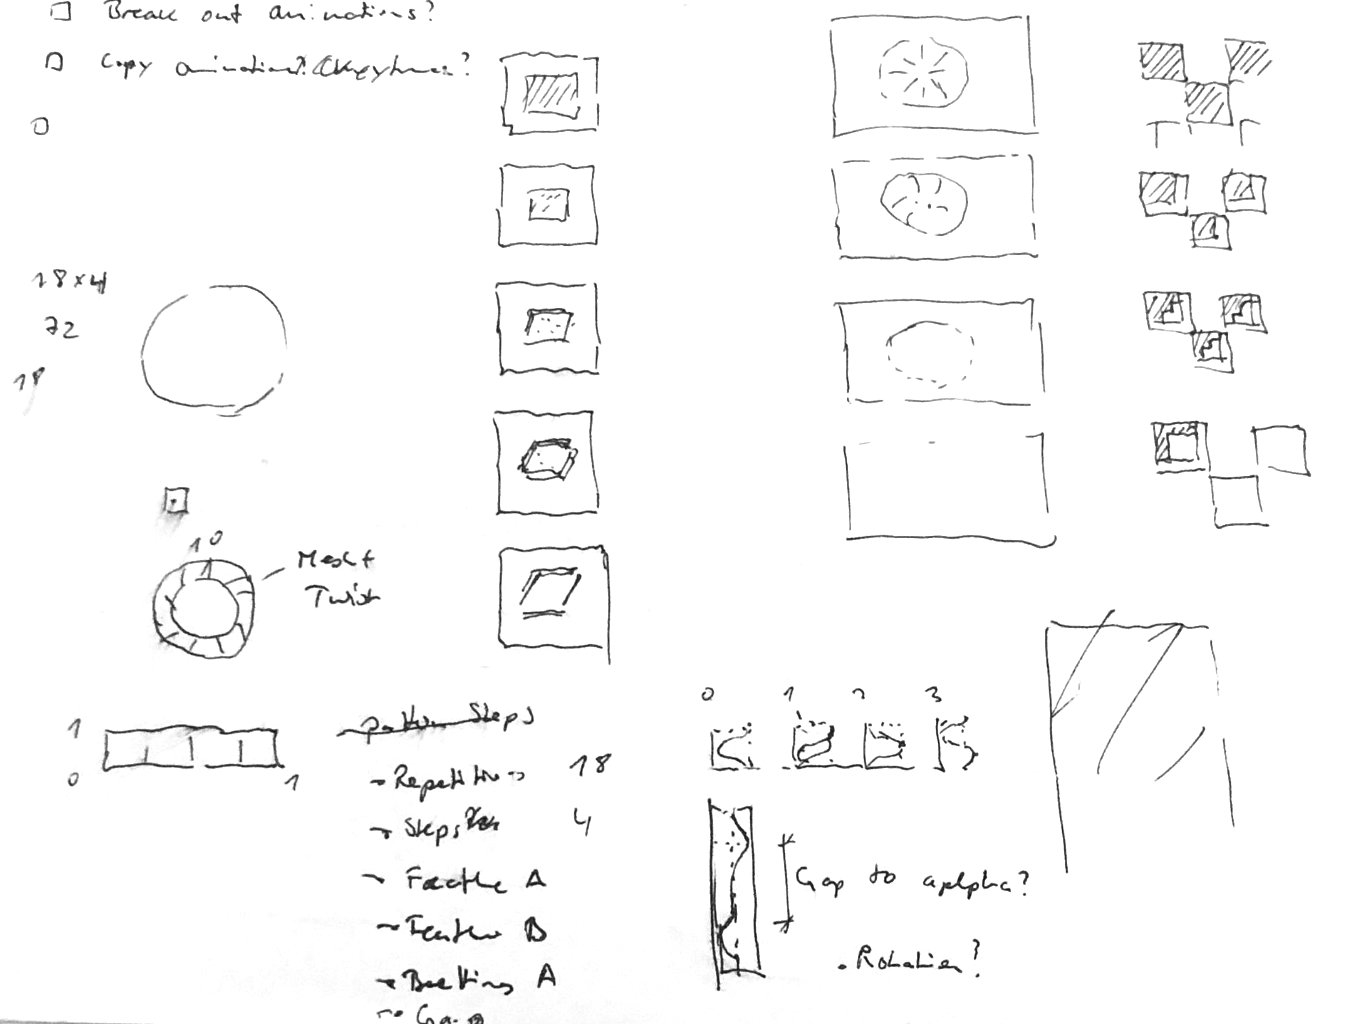 Break out animations?
Copy animation?
18x4
72
18
1 0
Mesh
Twist
1
0
1
pattern Steps
Repetitions 18
Steps 4
Feather A
Feather B
A
Gap
0 1 2 3
Gap to aplpha?
Rotation?